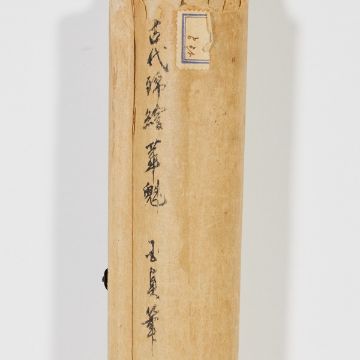 古代錦繪華魁 国貞筆